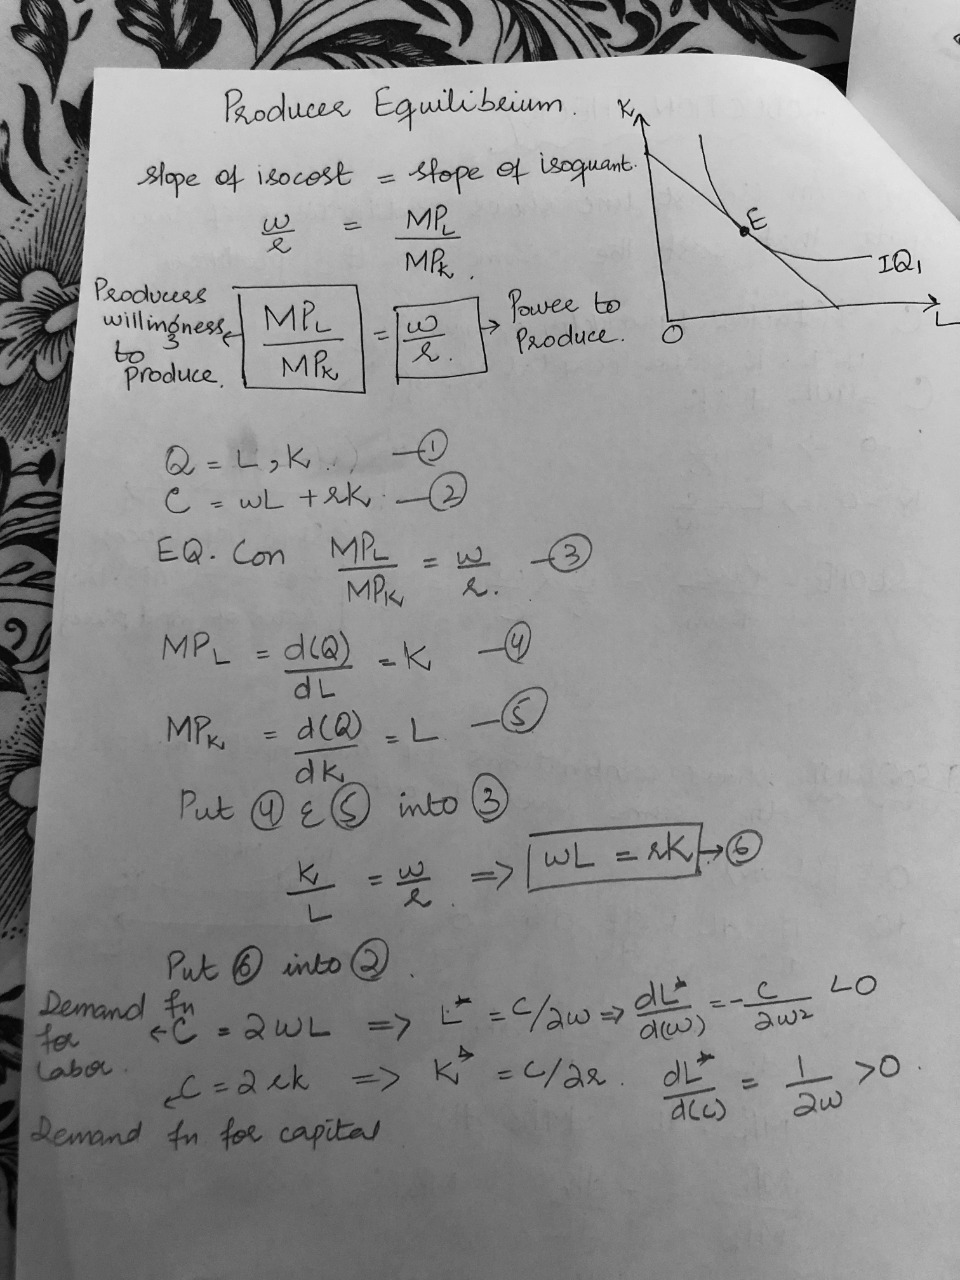 Producer Equilibrium.
slope of isocost = slope of isoquant.
w/r = MPL/MPK.
K
E
IQ1
O
L
Producers willingness to produce.
MPL/MPK = w/r.
Power to Produce.
Q = L, K. —①
C = wL + rK. —②
EQ. Con MPL/MPK = w/r. —③
MPL = d(Q)/dL = K —④
MPK = d(Q)/dK = L —⑤
Put ④ & ⑤ into ③
K/L = w/r. => wL = rK → ⑥
Put ⑥ into ②.
Demand fn for Labor. ← C = 2wL => L* = C/2w => dL*/d(w) = -C/2w2 <0
C = 2rk => K* = C/2r. dL*/d(c) = 1/2w >0.
Demand fn for capital